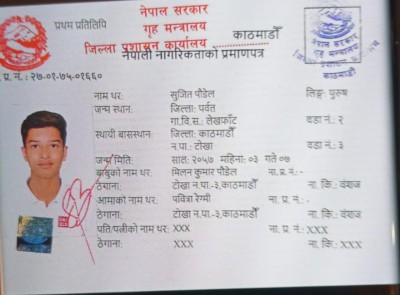 नेपाल सरकार
प्रथम प्रतिलिपि
गृह मन्त्रालय
जिल्ला प्रशासन कार्यालय काठमाडौँ
नेपाली नागरिकताको प्रमाणपत्र
नेपाल सरकार
काठमाडौँ
प्र. नं. : २७-०१-७५-०१६६०
नाम थर: सुजित पौडेल लिङ्ग: पुरुष
जन्म स्थान: जिल्ला: पर्वत
गा.वि.स.: लेखफाँट वडा नं.: २
स्थायी बासस्थान: जिल्ला: काठमाडौँ
न.पा.: टोखा वडा नं.: ३
जन्म मिति: साल: २०५७ महिना: ०३ गते ०७
बाबुको नाम थर: मिलन कुमार पौडेल ना. प्र. नं.-
ठेगाना: टोखा न.पा.-३,काठमाडौँ ना. कि.: वंशज
आमाको नाम थर: पवित्रा रेग्मी ना. प्र. नं.:-
ठेगाना: टोखा न.पा.-३,काठमाडौँ ना. कि.: वंशज
पति/पत्नीको नाम थर: XXX ना. प्र. नं.: XXX
ठेगाना: XXX ना. कि.: XXX